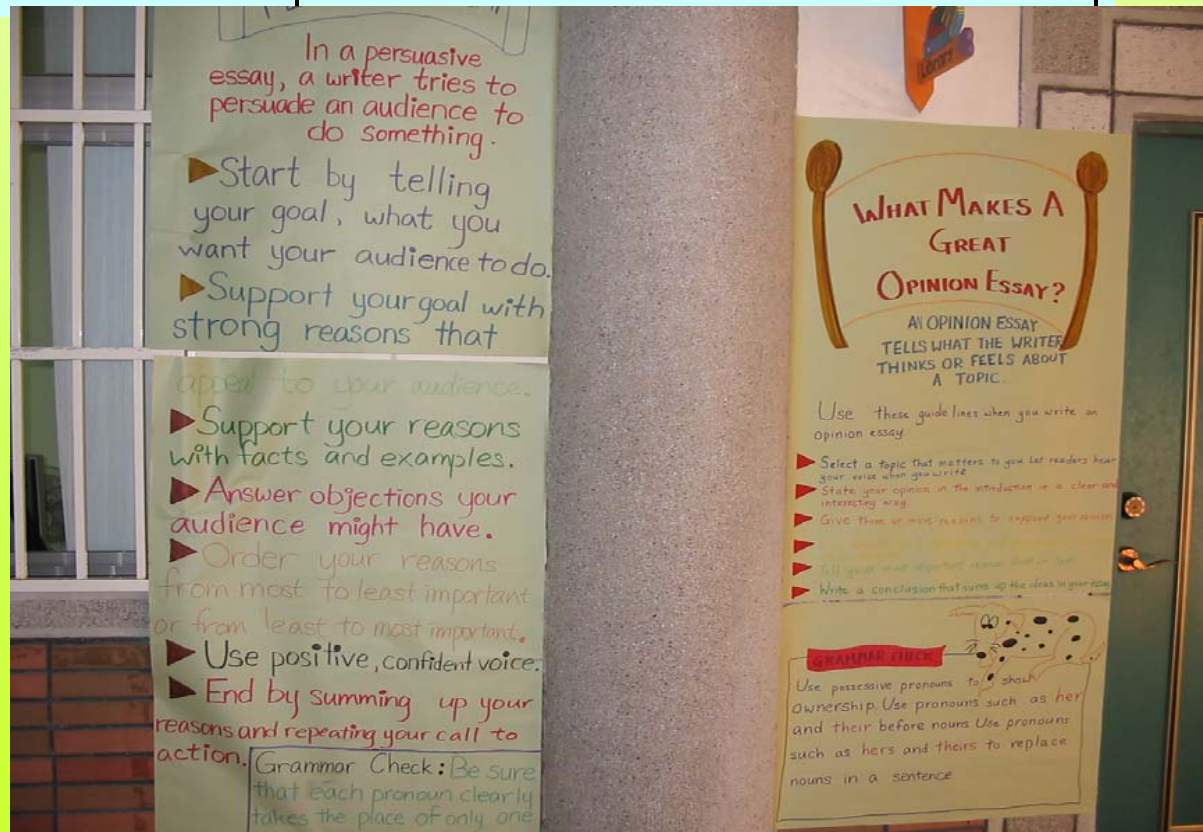 In a persuasive
essay, a writer tries to
persuade an audience to
do something.
Start by telling
your goal, what you
want your audience to do.
Support your goal with
strong reasons that
appeal to your audience.
Support your reasons
with facts and examples.
Answer objections your
audience might have.
Order your reasons
from most to least important
or from least to most important.
Use positive, confident voice.
End by summing up your
reasons and repeating your call to
action.
Grammar Check: Be sure
that each pronoun clearly
takes the place of only one
Library
WHAT MAKES A
GREAT
OPINION ESSAY?
AN OPINION ESSAY
TELLS WHAT THE WRITER
THINKS OR FEELS ABOUT
A TOPIC.
Use these guide lines when you write an
opinion essay.
Select a topic that matters to you Let readers hear
your voice when you write
State your opinion in the introduction in a clear and
interesting way.
Give three or more reasons to support your opinion
Tell your most important reason first or last
Write a conclusion that sums up the ideas in your essay
GRAMMAR CHECK
Use possessive pronouns to show
ownership. Use pronouns such as her
and their before nouns Use pronouns
such as hers and theirs to replace
nouns in a sentence